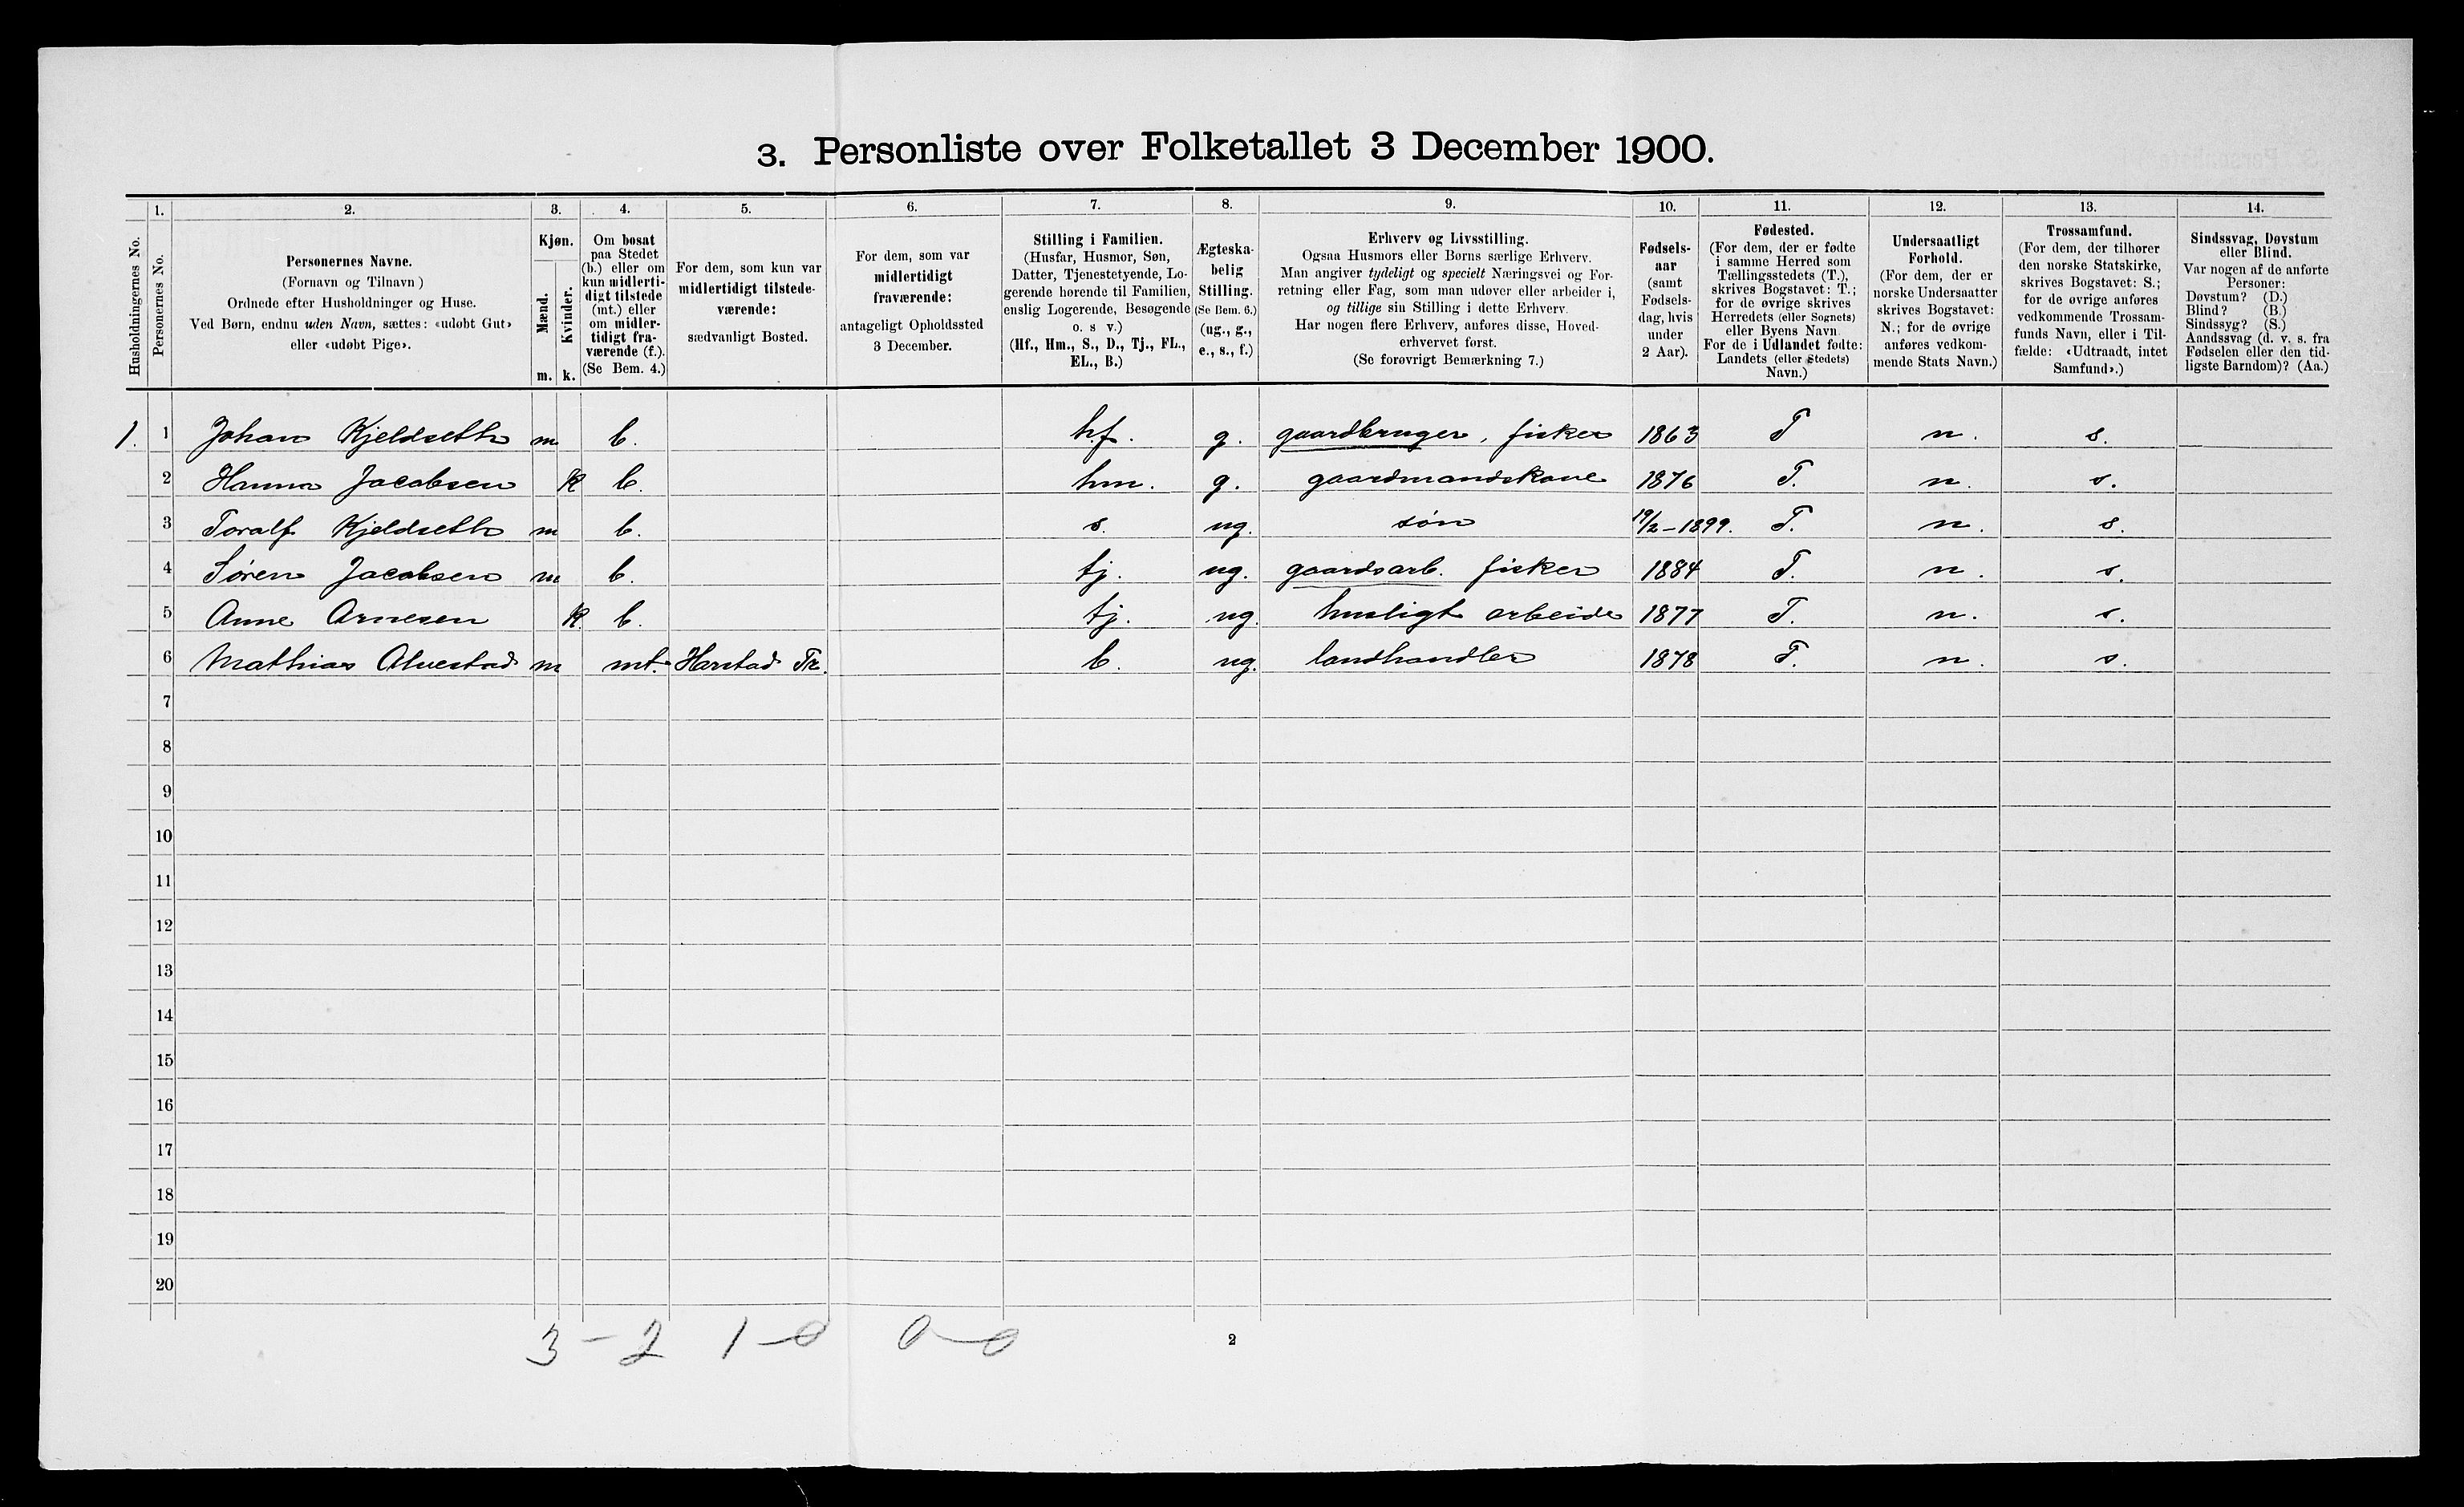 3. Personliste over Folketallet 3 December 1900.
1. 2. 3. 4. 5. 6. 7. 8. 9. 10. 11. 12. 13. 14.
Husholdningernes No.
Personernes No.
Personernes Navne.
(Fornavn og Tilnavn)
Ordnede efter Husholdninger og Huse.
Ved Børn, endnu uden Navn, sættes: «udøbt Gut»
eller «udøbt Pige».
Kjøn.
Mænd.
Kvinder.
m. k.
Om bosat
paa Stedet
(b.) eller om
kun midlerti-
digt tilstede
(mt.) eller
om midler-
tidigt fra-
værende (f.).
(Se Bem. 4.)
For dem, som kun var
midlertidigt tilstede-
værende:
sædvanligt Bosted.
For dem, som var
midlertidigt
fraværende:
antageligt Opholdssted
3 December.
Stilling i Familien.
(Husfar, Husmor, Søn,
Datter, Tjenestetyende, Lo-
gerende hørende til Familien,
enslig Logerende, Besøgende
o. s v.)
(Hf., Hm., S., D., Tj., FL.,
EL., B.)
Ægteska-
belig
Stilling.
(Se Bem. 6.)
(ug., g.,
e., s., f.)
Erhverv og Livsstilling.
Ogsaa Husmors eller Børns særlige Erhverv.
Man angiver tydeligt og specielt Næringsvei og For-
retning eller Fag, som man udøver eller arbeider i,
og tillige sin Stilling i dette Erhverv.
Har nogen flere Erhverv, anføres disse, Hoved-
erhvervet først.
(Se forøvrigt Bemærkning 7.)
Fødsels-
aar
(samt
Fødsels-
dag, hvis
under
2 Aar).
Fødested.
(For dem, der er fødte
i samme Herred som
Tællingsstedets (T.),
skrives Bogstavet: T.;
for de øvrige skrives
Herredets (eller Sognets)
eller Byens Navn.
For de i Udlandet fødte:
Landets (eller Stedets)
Navn.)
Undersaatligt
Forhold.
(For dem, der er
norske Undersaatter
skrives Bogstavet:
N.; for de øvrige
anføres vedkom-
mende Stats Navn.)
Trossamfund.
(For dem, der tilhører
den norske Statskirke,
skrives Bogstavet: S.;
for de øvrige anføres
vedkommende Trossam-
funds Navn, eller i Til-
fælde: «Udtraadt, intet
Samfund».)
Sindssvag, Døvstum
eller Blind.
Var nogen af de anførte
Personer:
Døvstum? (D.)
Blind? (B.)
Sindssyg? (S.)
Aandssvag (d. v. s. fra
Fødselen eller den tid-
ligste Barndom)? (Aa.)
1. 1 Johan Kjeldseth m b. hf. g. gaardbruger, fisker 1863 T n. s.
2 Hanna Jacobsen k b. hm. g. gaardmandskone 1876 T. n. s.
3 Toralf Kjeldseth m b. s. ug. søn 19/2-1899. T. n. s.
4 Søren Jacobsen m b. tj. ug. gaardsarb. fisker 1884 T. n. s.
5 Anne Arnesen k. b. tj. ug. husligt arbeide 1877 T. n. s.
6 Mathias Alvestad m mt. Harstad Tr. b. ug. landhandler 1878 T. n. s.
7
8
9
10
11
12
13
14
15
16
17
18
19
20
3 - 2 1 - 0 0 - 0
2